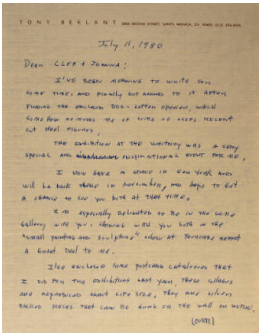 TONY BERLANT
July 11, 1980
Dear CLEE & JOANNA:
I'VE BEEN MEANING TO WRITE YOU
SOME TIME, AND FINALLY GOT AROUND TO IT AFTER
FINDING THE ENCLOSED OPENER, WHICH
SOMEHOW REMINDS ME OF SOME OF RECENT
CUT FIGURES.
THE EXHIBITION AT THE WHITNEY WAS A VERY
SPECIAL AND INSPIRATIONAL EVENT FOR ME.
I NOW HAVE A IN NEW YORK AND
WILL BE BACK THERE IN AND HOPE TO GET
A CHANCE TO SEE YOU BOTH AT THAT TIME.
I'M ESPECIALLY DELIGHTED TO BE IN THE SAME
GALLERY WITH YOU. SHOWING WITH YOU BOTH IN THE
"SMALL PAINTING AND SCULPTURE" SHOW AT MEANT
A GREAT DEAL TO ME.
I'VE ENCLOSED SOME POSTCARD CATALOGUES THAT
I DID FOR THE EXHIBITIONS LAST YEAR. THESE
ARE REPRODUCED THEY ARE
PIECES THAT CAN BE HUNG ON THE WALL OR
(OVER)